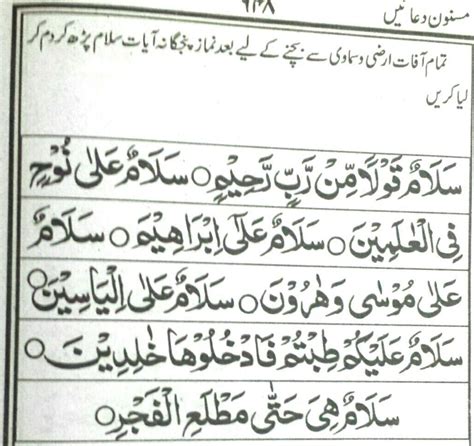 مسنون دعائیں ۶۴۸
تمام آفات ارضی و سماوی سے بچنے کے لیے بعد نماز پنجگانہ آیات سلام پڑھ کر دم کر
لیا کریں
سَلَامٌ قَوْلًا مِّنْ رَّبٍّ رَّحِیْمٍ ○ سَلَامٌ عَلٰی نُوْحٍ
فِی الْعٰلَمِیْنَ ○ سَلَامٌ عَلٰٓی اِبْرَاهِیْمَ ○ سَلَامٌ
عَلٰی مُوْسٰی وَهٰرُوْنَ ○ سَلَامٌ عَلٰٓی اِلْیَاسِیْنَ ○
سَلَامٌ عَلَیْكُمْ طِبْتُمْ فَادْخُلُوْهَا خٰلِدِیْنَ ○
سَلَامٌ هِیَ حَتّٰی مَطْلَعِ الْفَجْرِ ○